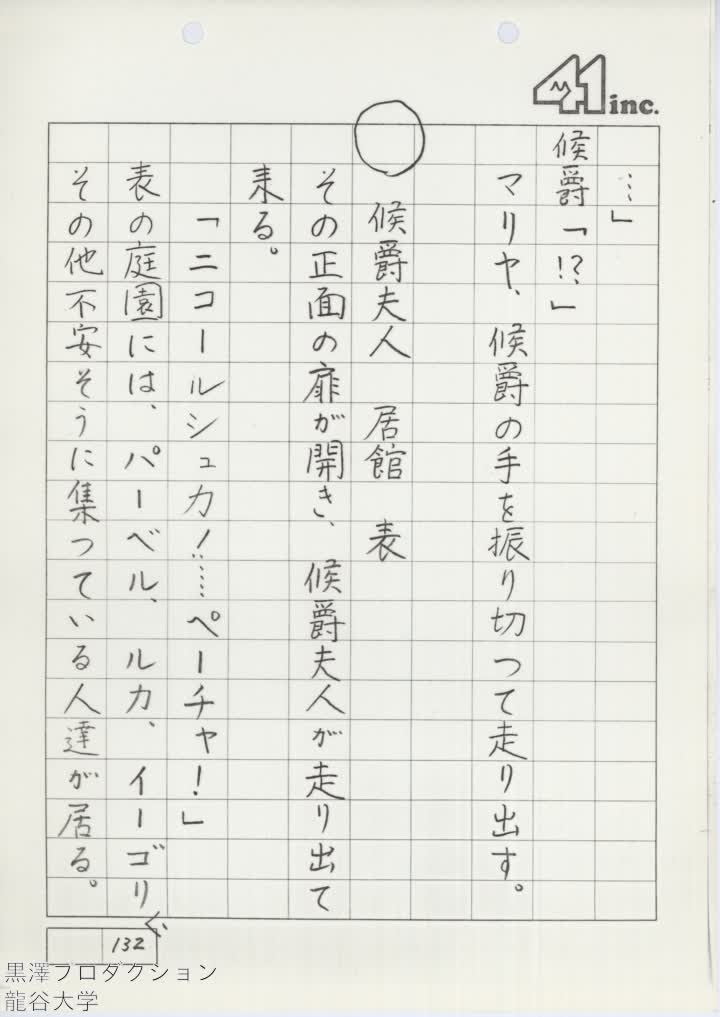 41 inc.
…」
候爵「!?」
マリヤ、候爵の手を振り切つて走り出す。
候爵夫人　居館　表
その正面の扉が開き、候爵夫人が走り出て
来る。
「ニコールシュカ！……ペーチャ！」
表の庭園には、パーベル、ルカ、イーゴリ
その他不安そうに集つている人達が居る。
132
黒澤プロダクション
龍谷大学